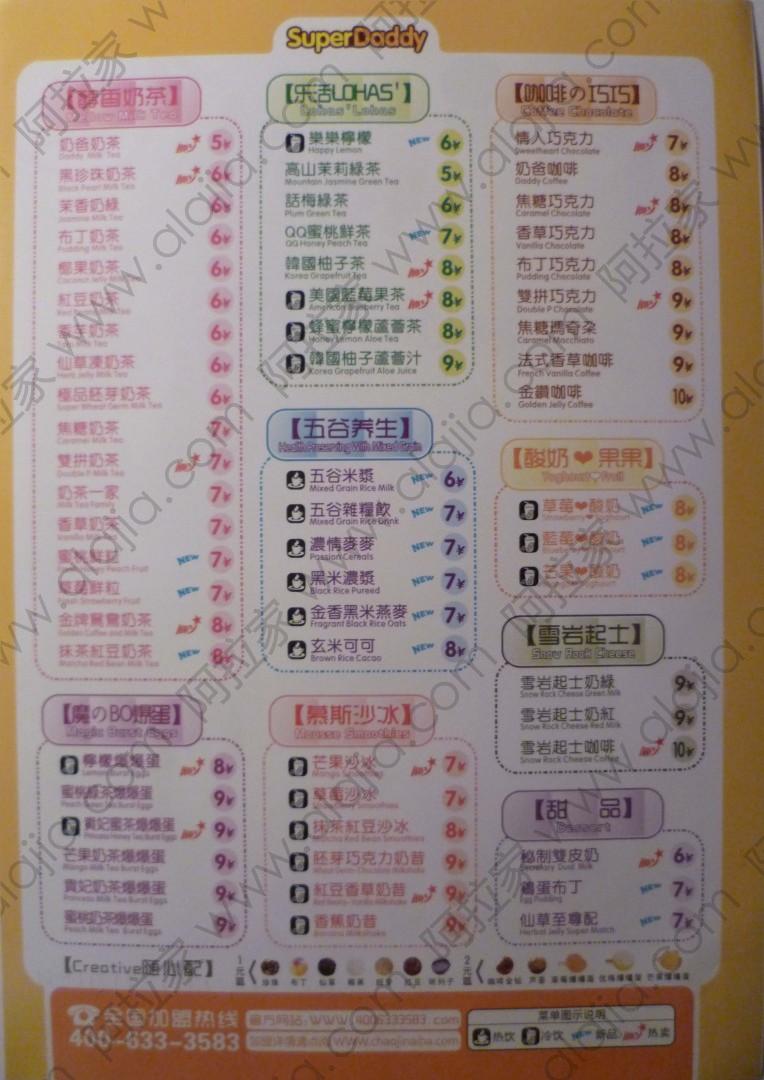 SuperDaddy
奶茶】
Milk Tea
奶爸奶茶 5¥
Daddy Milk Tea
黑珍珠奶茶 6¥
Black Pearl Milk Tea
茉香奶綠 6¥
Jasmine Milk Tea
布丁奶茶 6¥
Pudding Milk Tea
椰果奶茶 6¥
Coconut Jelly Milk Tea
紅豆奶茶 6¥
奶茶 6¥
仙草凍奶茶 6¥
Herb Jelly Milk Tea
極品胚芽奶茶 6¥
Super Wheat Germ Milk Tea
焦糖奶茶 7¥
Caramel Milk Tea
雙拼奶茶 7¥
Double P Milk Tea
奶茶一家 7¥
Milk Tea Family
香草奶茶 7¥
Vanilla Milk Tea
蜜桃鮮粒 NEW 7¥
Peach Fruit
草莓鮮粒 NEW 7¥
Fresh Strawberry Fruit
金牌鴛鴦奶茶 8¥
Golden Coffee and Milk Tea
抹茶紅豆奶茶 NEW 8¥
Matcha Red Bean Milk Tea
【魔のBO爆蛋】
Magic Burst Eggs
檸檬爆爆蛋 8¥
Lemon Burst Eggs
蜜桃綠茶爆爆蛋 9¥
Peach Green Tea Burst Eggs
貴妃蜜茶爆爆蛋 9¥
Princess Honey Tea Burst Eggs
芒果奶茶爆爆蛋 9¥
Mango Milk Tea Burst Eggs
貴妃奶茶爆爆蛋 9¥
Princess Milk Tea Burst Eggs
蜜桃奶茶爆爆蛋 9¥
Peach Milk Tea Burst Eggs
【乐活LOHAS'】
Lohas' Lohas
樂樂檸檬 NEW 6¥
Happy Lemon
高山茉莉綠茶 5¥
Mountain Jasmine Green Tea
話梅綠茶 6¥
Plum Green Tea
QQ蜜桃鮮茶 NEW 7¥
QQ Honey Peach Tea
韓國柚子茶 8¥
Korea Grapefruit Tea
美國藍莓果茶 8¥
American Blueberry Tea
蜂蜜檸檬蘆薈茶 8¥
Honey Lemon Aloe Tea
韓國柚子蘆薈汁 9¥
Korea Grapefruit Aloe Juice
【五谷养生】
Health Preserving With Mixed Grain
五谷米漿 NEW 6¥
Mixed Grain Rice Milk
五谷雜糧飲 NEW 7¥
Mixed Grain Rice Drink
濃情麥麥 NEW 7¥
Passion Cereals
黑米濃漿 NEW 7¥
Black Rice Pureed
金香黑米燕麥 NEW 7¥
Fragrant Black Rice Oats
玄米可可 NEW 8¥
Brown Rice Cacao
【慕斯沙冰】
Mousse Smoothies
芒果沙冰 7¥
Mango Smoothies
草莓沙冰 7¥
Strawberry Smoothies
抹茶紅豆沙冰 8¥
Matcha Red Bean Smoothies
胚芽巧克力奶昔 9¥
Wheat Germ-Chocolate Milkshake
紅豆香草奶昔 9¥
Red Beans-Vanilla Milkshake
香蕉奶昔 9¥
Banana Milkshake
【咖啡の巧巧】
Coffee Chocolate
情人巧克力 7¥
Sweetheart Chocolate
奶爸咖啡 8¥
Daddy Coffee
焦糖巧克力 8¥
Caramel Chocolate
香草巧克力 8¥
Vanilla Chocolate
布丁巧克力 8¥
Pudding Chocolate
雙拼巧克力 9¥
Double P Chocolate
焦糖瑪奇朵 9¥
Caramel Macchiato
法式香草咖啡 9¥
French Vanilla Coffee
金鑽咖啡 10¥
Golden Jelly Coffee
【酸奶❤果果】
Yoghourt❤Fruit
草莓❤酸奶 NEW 8¥
藍莓❤酸奶 NEW 8¥
芒果❤酸奶 NEW 8¥
【雪岩起士】
Snow Rock Cheese
雪岩起士奶綠 9¥
Snow Rock Cheese Green Milk
雪岩起士奶紅 9¥
Snow Rock Cheese Red Milk
雪岩起士咖啡 10¥
Snow Rock Cheese Coffee
【甜 品】
Dessert
秘制雙皮奶 6¥
Secretary Dual Milk
鶏蛋布丁 NEW 7¥
Egg Pudding
仙草至尊配 NEW 7¥
Herbal Jelly Super Match
【Creative随心配】
1元區
珍珠 布丁 仙草 椰果
2元區
咖啡金钻 芦荟 草莓爆爆蛋 优格爆爆蛋 芒果爆爆蛋
☎全国加盟热线
400-633-3583
官方网站:WWW.4006333583.com
加盟详情请点击 www.chaojinaiba.com
菜单图示说明
热饮 冷饮 NEW 新品 热卖
阿拉家 www.alajia.com